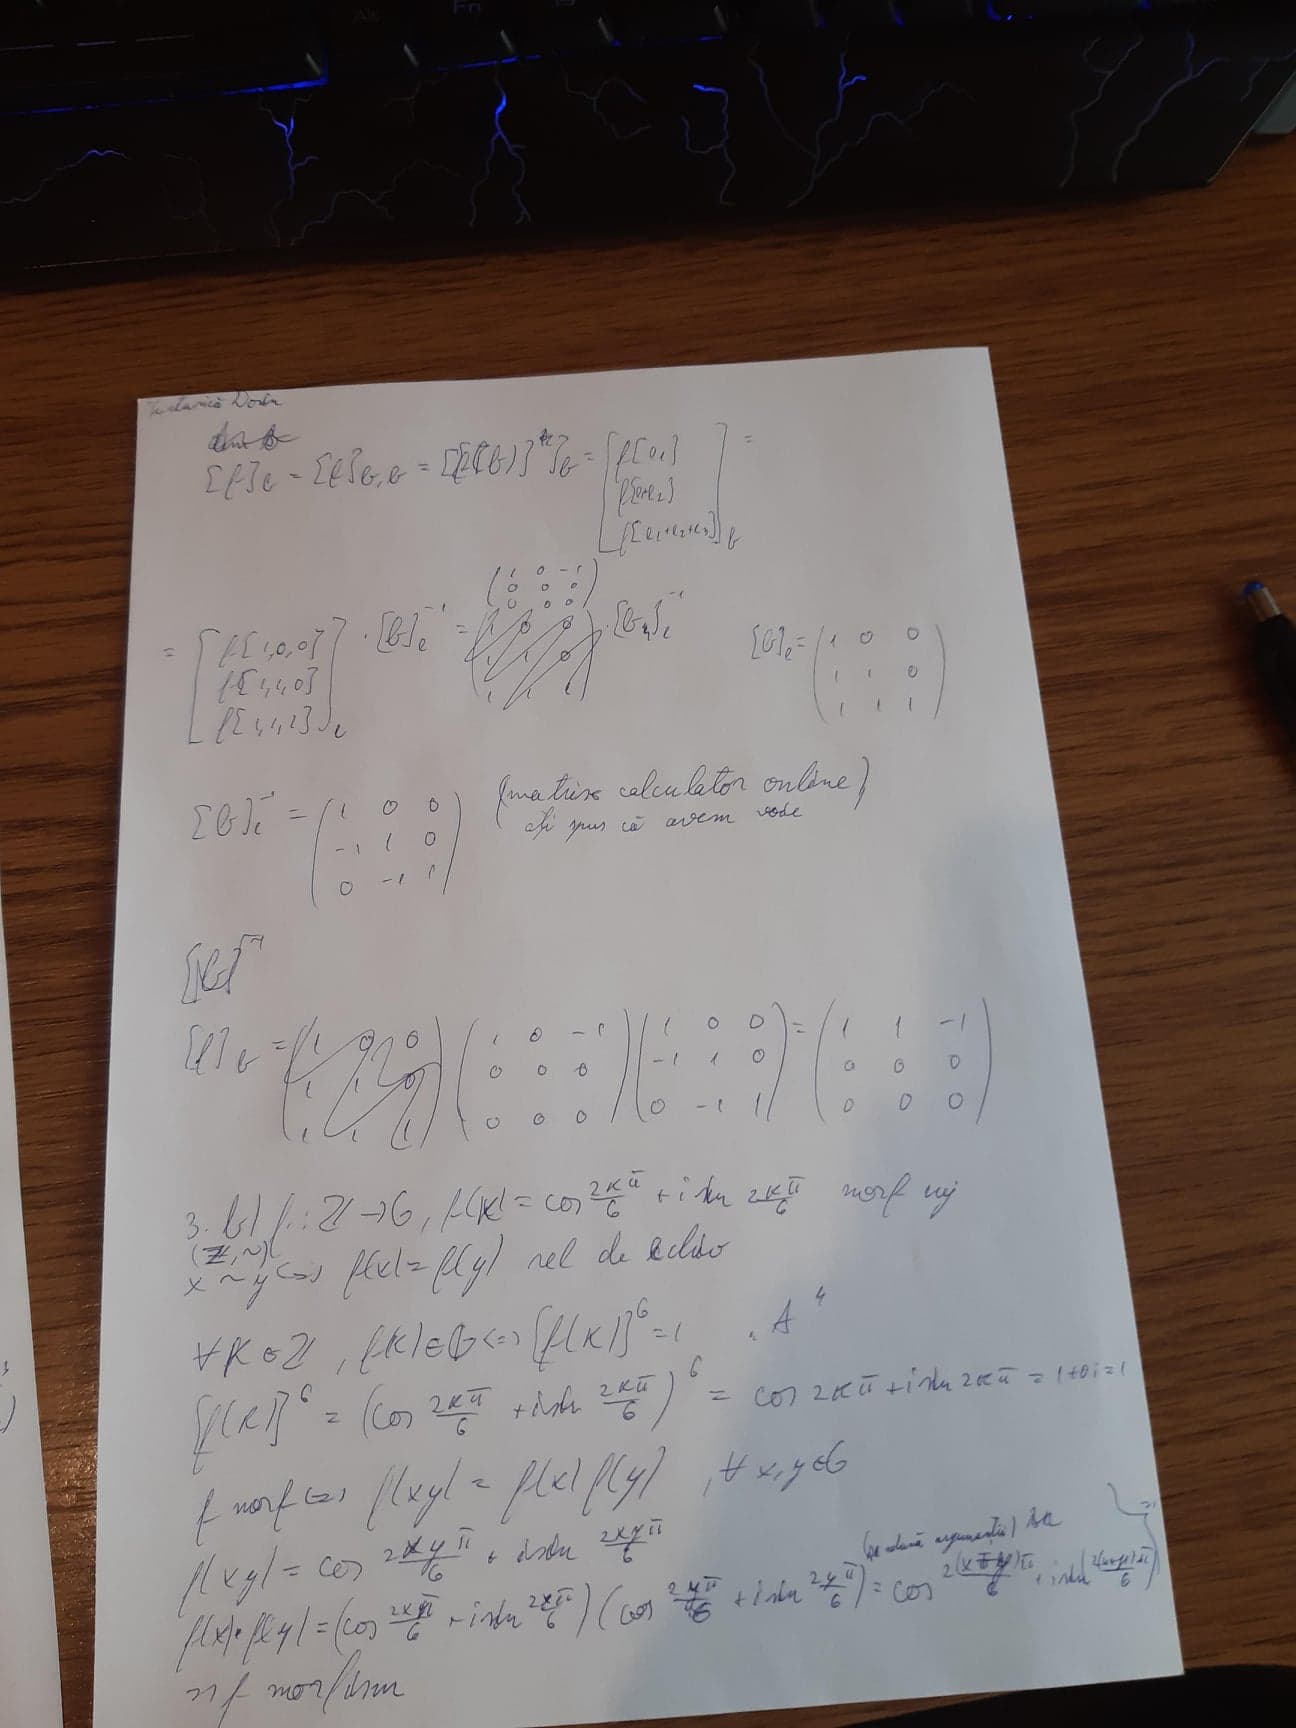 Dorin
[f]_b = [f]_{b,b} = [f(b)]^{t}]_b = [f[e1] f[e1+e2] f[e1+e2+e3]]_b =
= [f[1,0,0] f[1,1,0] f[1,1,1]]_e · [b]_e^{-1} = (1 0 -1 / 0 0 0 / 0 0 0) · [b]_e^{-1} [b]_e = (1 0 0 / 1 1 0 / 1 1 1)
[b]_e^{-1} = (1 0 0 / -1 1 0 / 0 -1 1) (matrix calculator online)
ați spus că avem voie
[b]^{-1}
[f]_b = (1 0 -1 / 0 0 0 / 0 0 0) (1 0 0 / -1 1 0 / 0 -1 1) = (1 1 -1 / 0 0 0 / 0 0 0)
3. b) f: Z → G, f(k) = cos 2kπ/6 + i sin 2kπ/6 morf
(Z, ~)
x ~ y <=> f(x) = f(y) rel de echiv
∀ k ∈ Z, f(k) ∈ G <=> [f(k)]^6 = 1 „A"
[f(k)]^6 = (cos 2kπ/6 + i sin 2kπ/6)^6 = cos 2kπ + i sin 2kπ = 1+0i = 1
f morf <=> f(xy) = f(x) f(y), ∀ x, y ∈ G
f(xy) = cos 2xyπ/6 + i sin 2xyπ/6
(se adună argumentele)
f(x)·f(y) = (cos 2xπ/6 + i sin 2xπ/6) (cos 2yπ/6 + i sin 2yπ/6) = cos 2(x+y)π/6 + i sin 2(x+y)π/6
=> f morfism